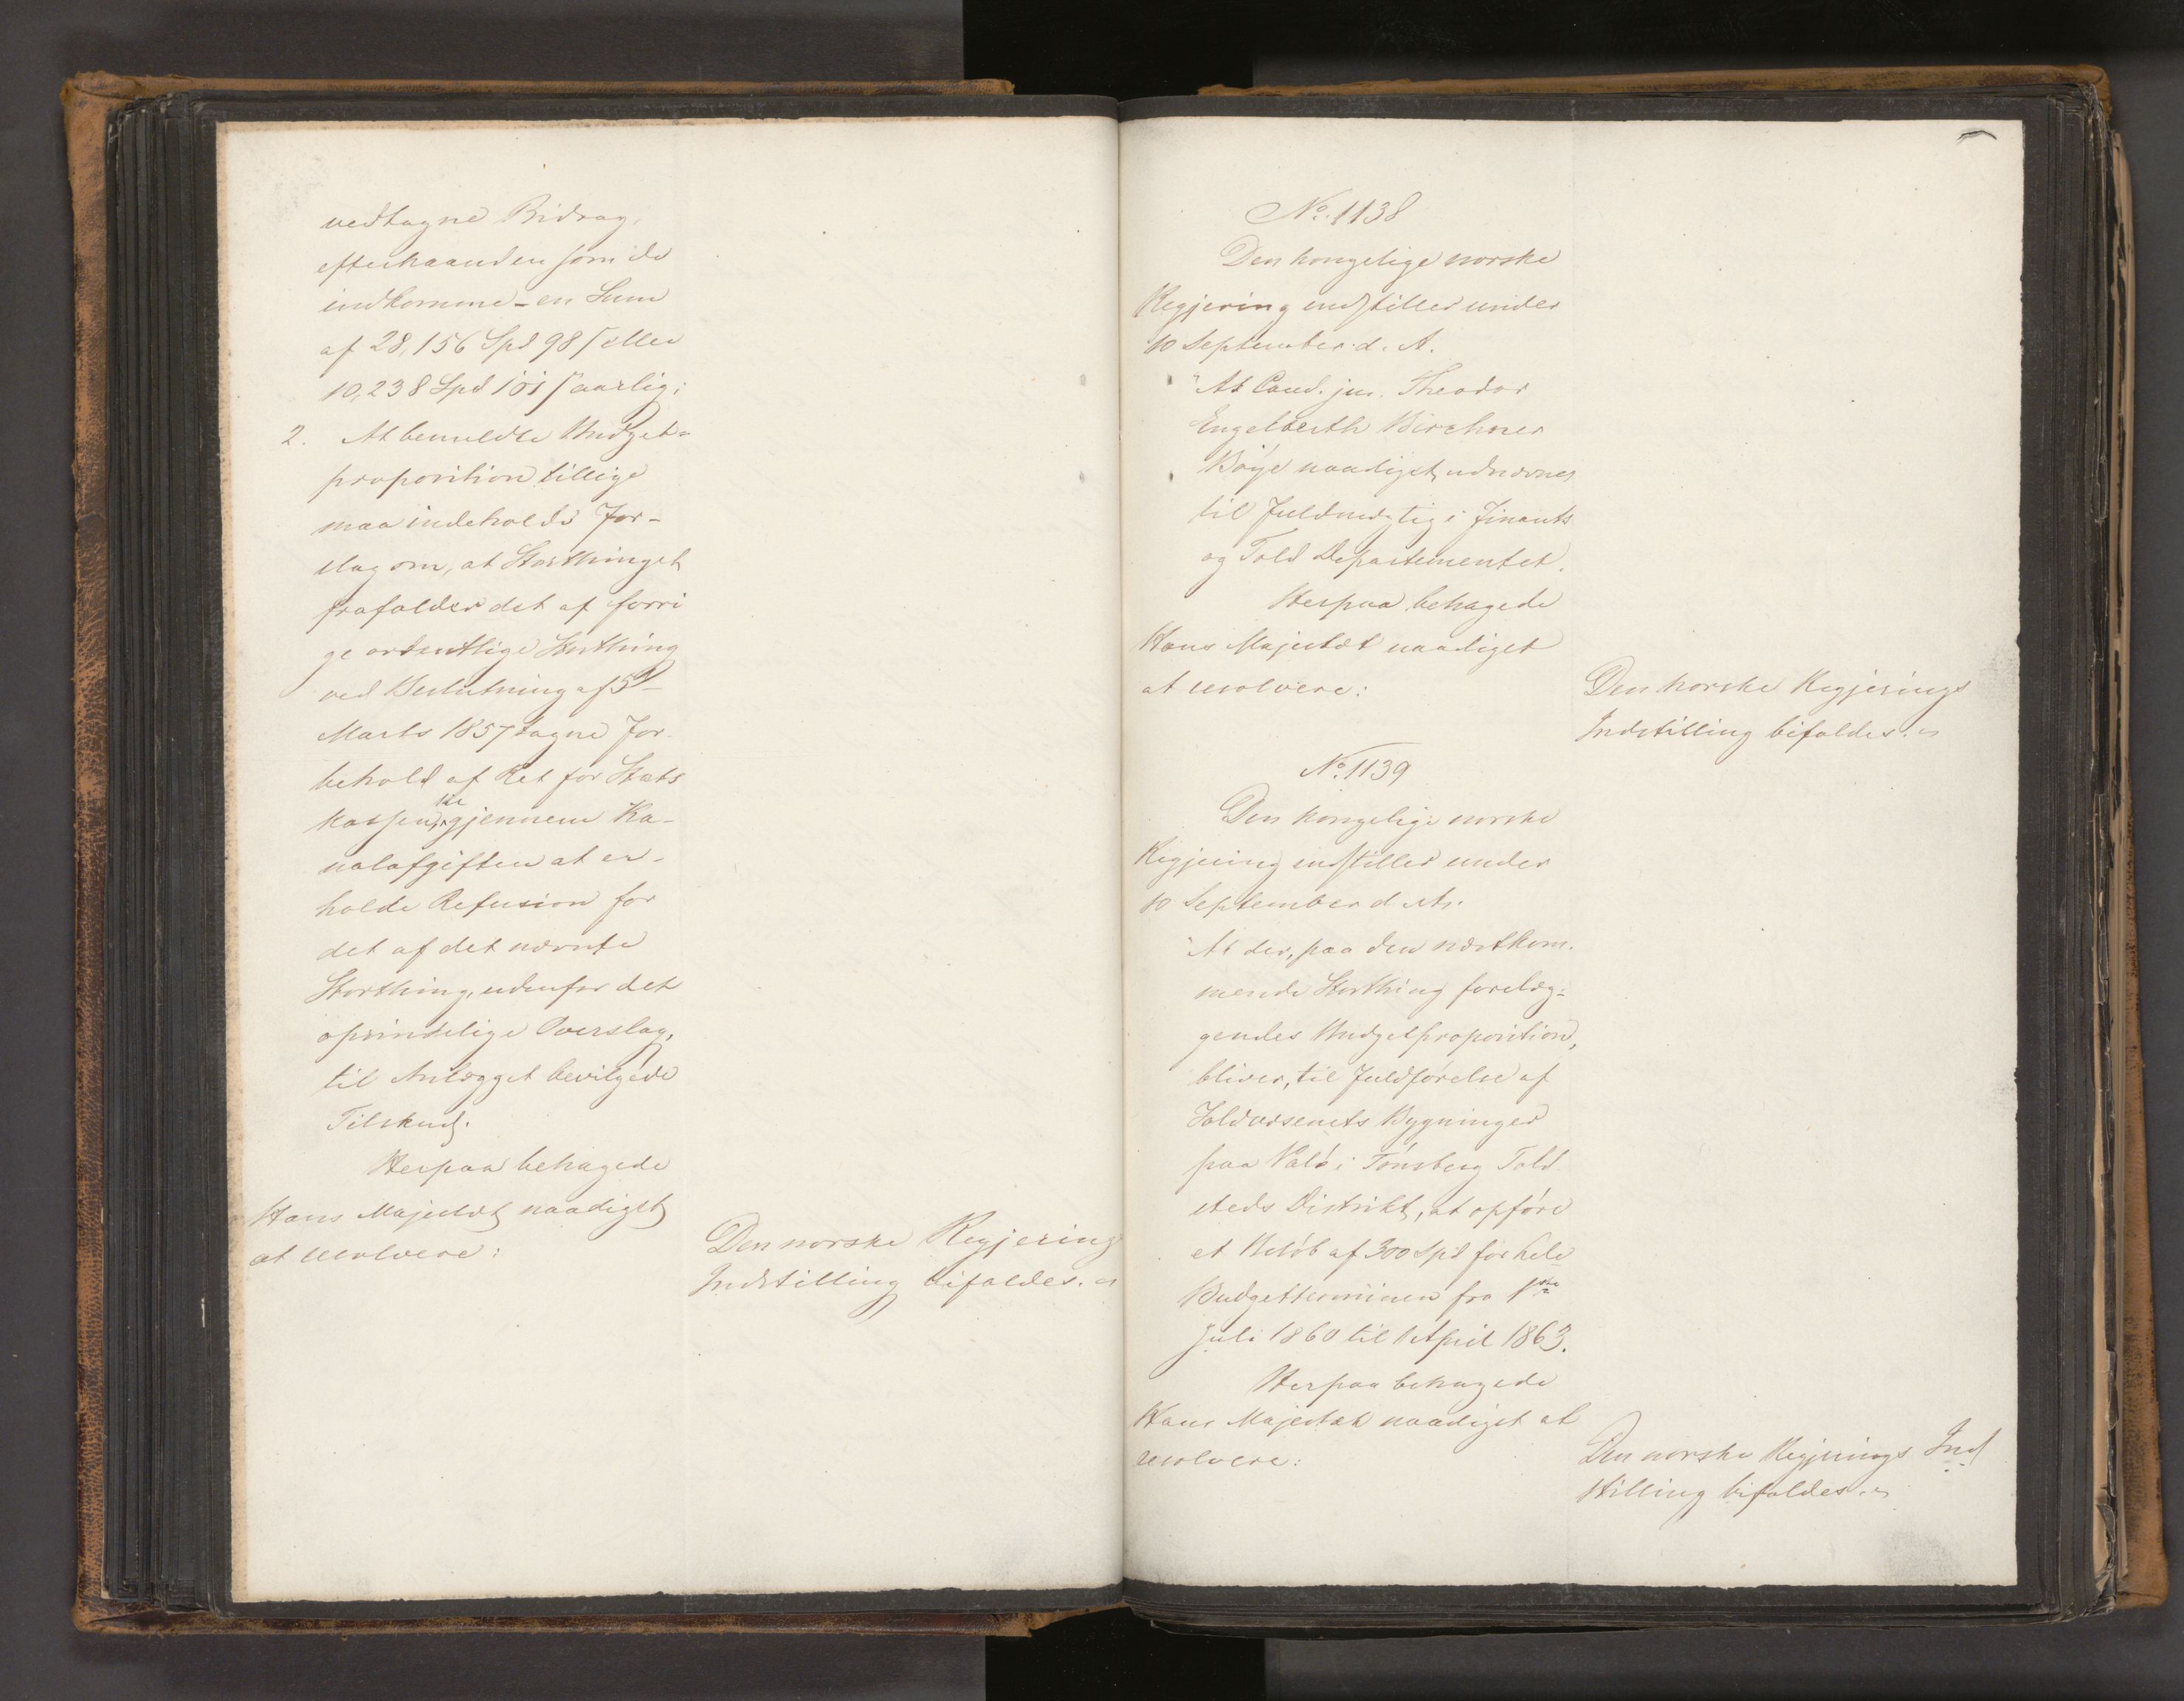 vedtagne Bidrag,
efterhaanden som de
indkomme - en Sum
af 28,156 Spd 98 ſ eller
10,238 Spd 101 ſ aarlig;
2. At bemeldte Budget-
proposition tillige
maa indeholde For-
slag om, at Storthinget
frafalder det af forri
ge ordentlige Storthing
ved Beslutning af 5
Marts 1857 tagne For-
behold af Ret for Stats
kassen gjennem Ka-
nalafgiften at er-
holde Refusion for
det af det nævnte
Storthing, udenfor det
oprindelige Overslag,
til Anlægget bevilgede
Tilskud.
Herpaa behagede
Hans Majestæt naadigst
at resolvere:
Den norske Regjerings
Indstilling bifaldes.
No. 1138
Den kongelige norske
Regjering indstiller under
10 September d. A.
"At Cand. jur. Theodor
Engelbreth Birchner
Böye naadigst udnævnes
til Fuldmægtig i Finants
og Told Departementet.
Herpaa behagede
Hans Majestæt naadigst
at resolvere:
Den norske Regjerings
Indstilling bifaldes.
No. 1139
Den kongelige norske
Regjering indstiller under
10 September d. A.
"At der, paa den næstkom-
mende Storthing forelæg-
gendes Budgetproposition,
bliver, til Fuldförelse af
Toldvæsenets Bygninger
paa Valö i Tönsberg Told
steds Distrikt, at opföre
et Belöb af 300 Spd for hele
Budgetterminen fra 1ste
Juli 1860 til 1 April 1863.
Herpaa behagede
Hans Majestæt naadigst at
resolvere:
Den norske Regjerings Ind
stilling bifaldes.